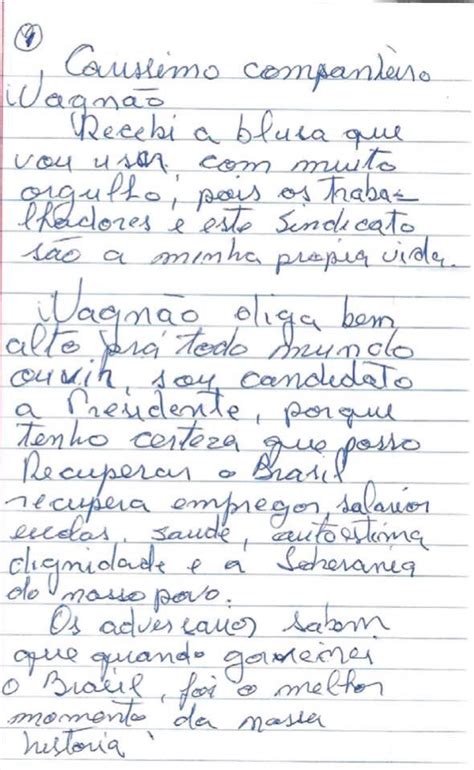 1
Carissimo companheiro
Wagnão
Recebi a blusa que
vou usar, com muito
orgulho, pois os traba-
lhadores e este Sindicato
são a minha propia vida.
Wagnão diga bem
alto prá todo mundo
ouvir, sou candidato
a Presidente, porque
tenho certeza que posso
Recuperar o Brasil
recupera empregos, salários
escolas, saude, autoestima
dignidade e a Soberania
do nosso povo.
Os adversarios sabem
que quando governei
o Brasil, foi o melhor
momento da nossa
historia